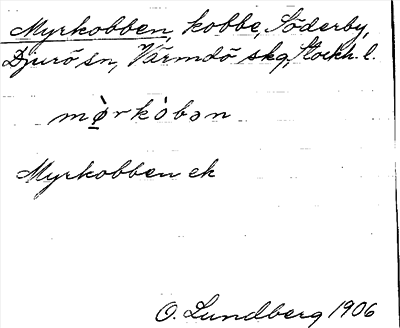 Myrkobben, kobbe, Söderby,
Djurö sn, Värmdö skg, Stockh. l.
mø̀rkòbən
Myrkobben ek
O. Lundberg 1906